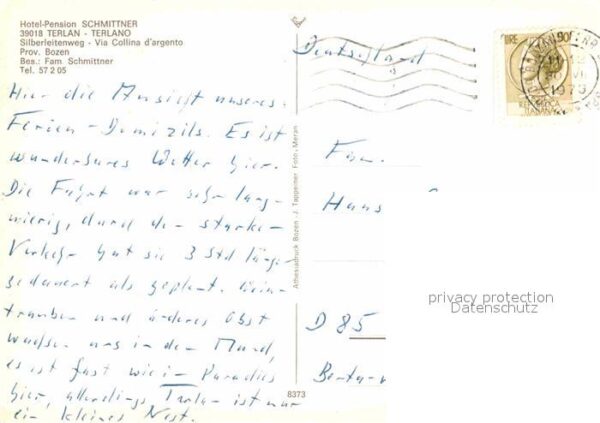 Hotel-Pension SCHMITTNER
39018 TERLAN - TERLANO
Silberleitenweg - Via Collina d'argento
Prov. Bozen
Bes.: Fam Schmittner
Tel. 57 2 05
Hier die Ansicht unseres
Ferien-Domizils. Es ist
wunderbares Wetter hier.
Die Fahrt war sehr lang-
wierig, durch den starken
Verkehr hat sie 3 Std länger
gedauert als geplant. Wein-
trauben und anderes Obst
wachsen uns in den Mund,
es ist fast wie im Paradies
hier, allerdings Terlan ist nur
ein kleines Nest.
Athesiadruck Bozen - J. Tappeiner Foto, Meran
8373
Deutschland
LIRE 90
1975
Fam.
Hans
D 85
privacy protection
Datenschutz